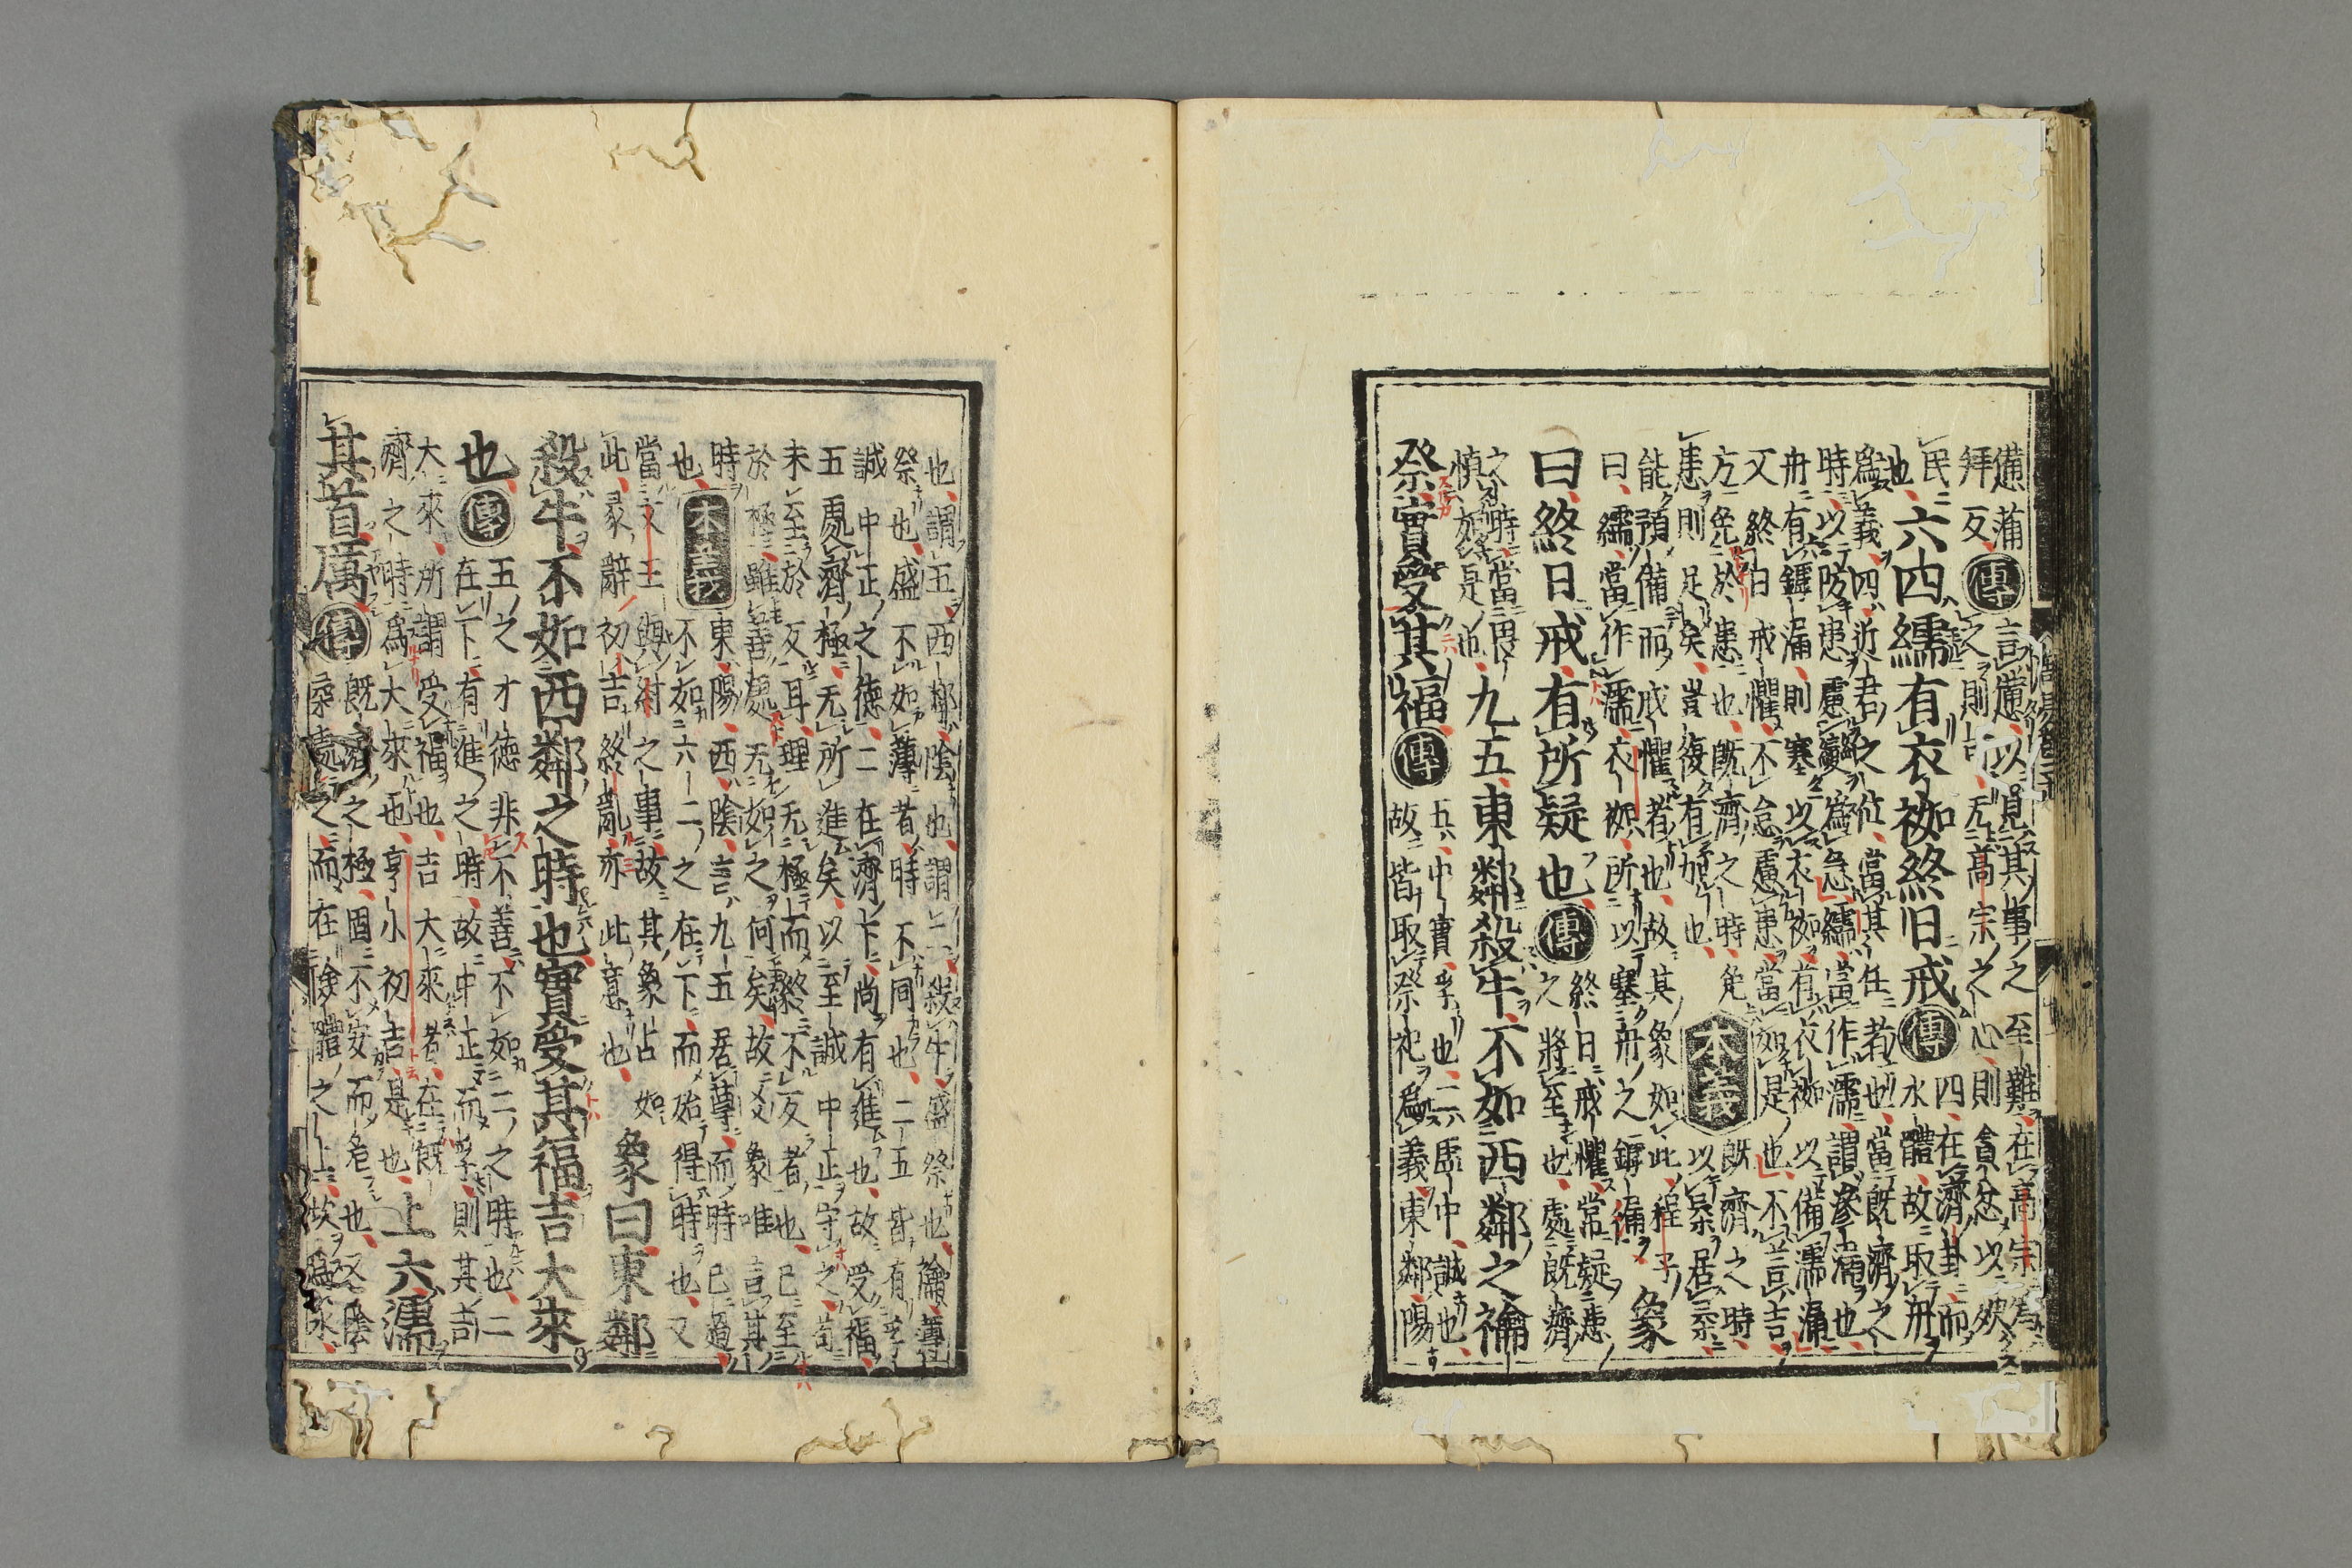 備蒲
拜反傳言憊以見其事之至難在高宗爲
之則可无高宗之心則貪忿以殃
民也六四繻有衣袽終日戒傳四在濟卦而
水體故取舟
爲義四近君之位當其任者也當既濟之
時以防患慮變爲急繻當作濡謂滲漏也
舟有罅漏則塞以衣袽有衣袽以備濡漏
又終日戒懼不怠慮患當如是也不言吉
方免於患也既濟之時免
患則足矣豈復有加也本義既濟之時
以柔居柔
能預備而戒懼者也故其象如此程子
曰繻當作濡衣袽所以塞舟之罅漏象
曰終日戒有所疑也傳終日戒懼常疑患
之將至也處既濟
之時當畏
慎如是也九五東鄰殺牛不如西鄰之禴
祭實受其福傳五中實孚也二虛中誠也
故皆取祭祀爲義東鄰陽
也謂五西鄰陰也謂二殺牛盛祭也禴薄
祭也盛不如薄者時不同也二五皆有孚
誠中正之德二在濟下尚有進也故受福
五處濟極无所進矣以至誠中正守之苟
未至於反耳理无極而終不反者也已至
於極雖善處无如之何矣故爻象唯言其
時也本義東陽西陰言九五居尊而時已過
不如六二之在下而始得時也又
當文王與紂之事故其象占如
此彖辭初吉終亂亦此意也象曰東鄰
殺牛不如西鄰之時也實受其福吉大來
也傳五之才德非不善不如二之時也二
在下有進之時故中正而孚則其吉
大來所謂受福也吉大來者在既
濟之時爲大來也亨小初吉是也上六濡
其首厲傳既濟之極固不安而危也又陰
柔處之而在險體之上坎爲水